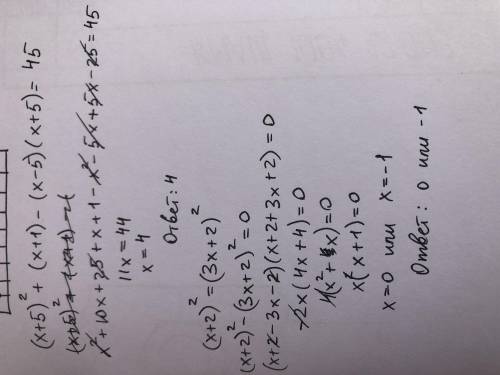 (x+5)² + (x+1) - (x-5)(x+5) = 45
x² + 10x + 25 + x + 1 - x² - 5x + 5x - 25 = 45
11x = 44
x = 4
Ответ: 4
(x+2)² = (3x+2)²
(x+2)² - (3x+2)² = 0
(x+2-3x-2)(x+2+3x+2) = 0
-2x(4x+4) = 0
x(x+1) = 0
x=0 или x=-1
Ответ: 0 или -1